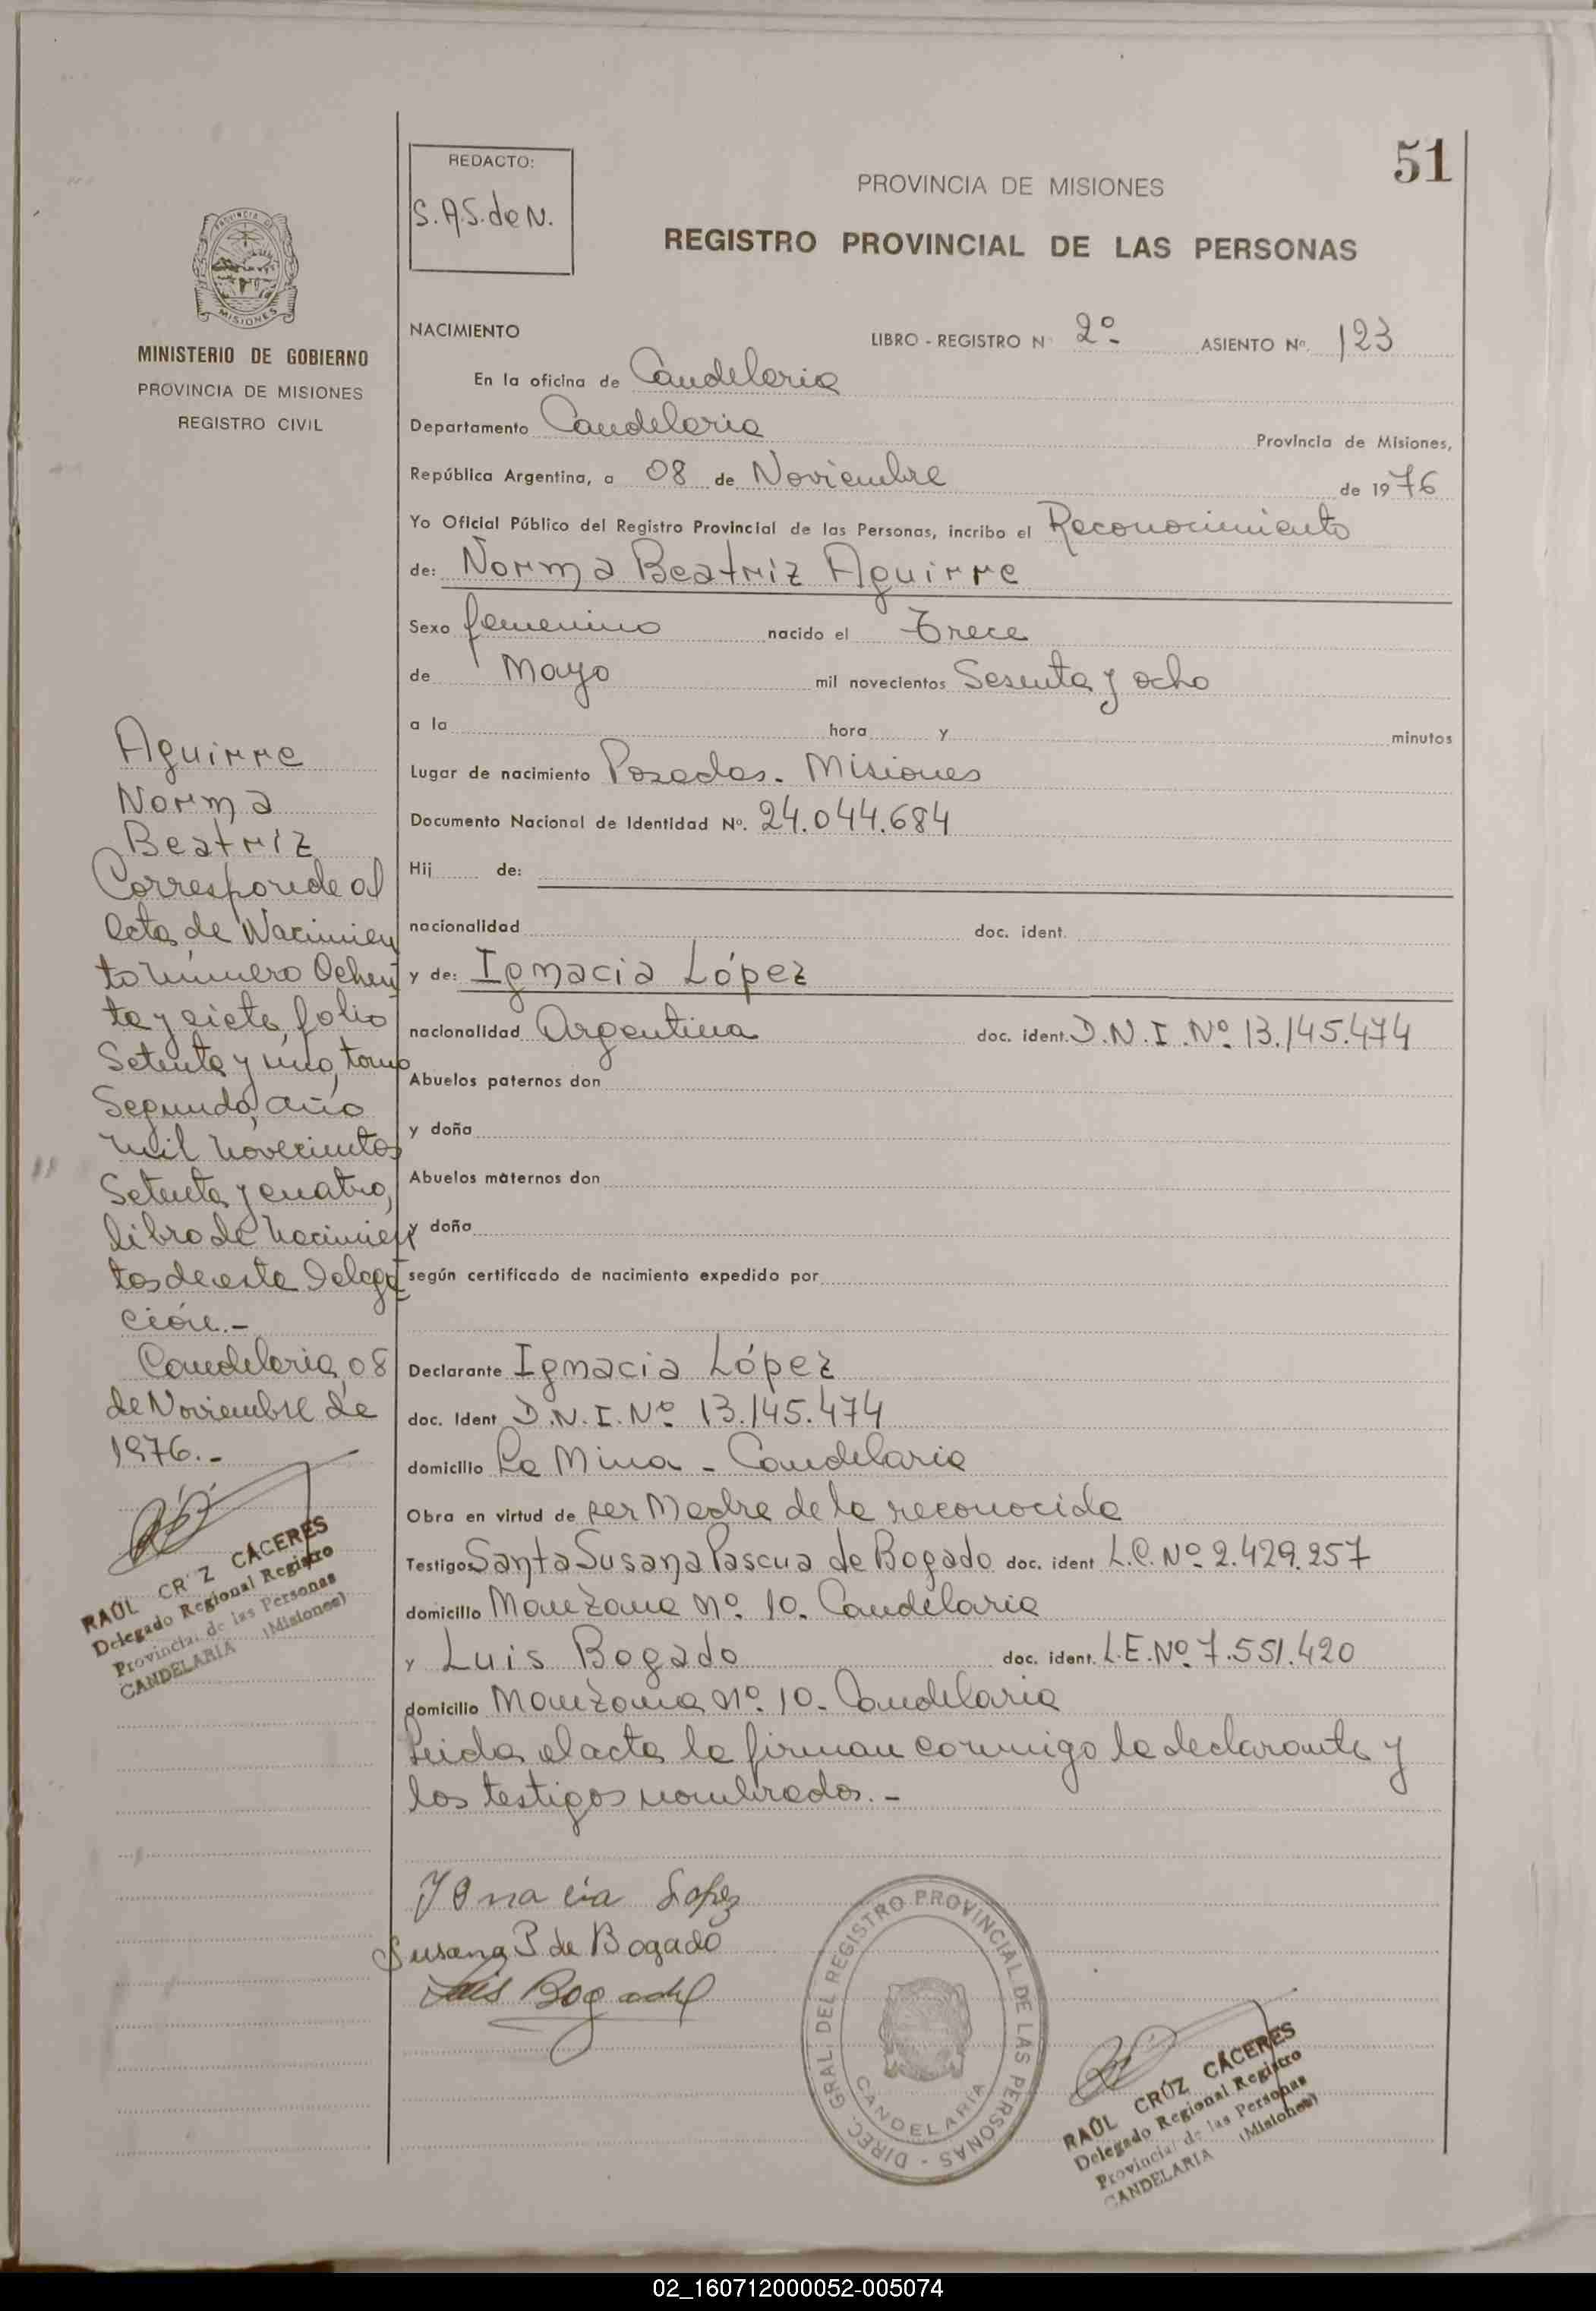 51
REDACTO:
S.A.S. de N.
PROVINCIA DE MISIONES
REGISTRO PROVINCIAL DE LAS PERSONAS
PROVINCIA DE
MISIONES
MINISTERIO DE GOBIERNO
PROVINCIA DE MISIONES
REGISTRO CIVIL
NACIMIENTO LIBRO - REGISTRO N° 2º ASIENTO Nº. 123
En la oficina de Candelaria
Departamento Candelaria Provincia de Misiones,
República Argentina, a 08 de Noviembre de 1976
Yo Oficial Público del Registro Provincial de las Personas, incribo el Reconocimiento
de: Norma Beatriz Aguirre
Sexo femenino nacido el Trece
de Mayo mil novecientos Sesenta y ocho
a la hora y minutos
Lugar de nacimiento Posadas. Misiones
Documento Nacional de Identidad Nº. 24.044.684
Hij de:
nacionalidad doc. ident.
y de: Ignacia López
nacionalidad Argentina doc. ident. D.N.I. Nº 13.145.474
Abuelos paternos don
y doña
Abuelos maternos don
y doña
según certificado de nacimiento expedido por
Declarante Ignacia López
doc. Ident D.N.I. Nº 13.145.474
domicilio La Mina - Candelaria
Obra en virtud de ser Madre de la reconocida
Testigos Santa Susana Pascua de Bogado doc. ident L.C. Nº 2.429.257
domicilio Manzana Nº 10. Candelaria
y Luis Bogado doc. ident. L.E. Nº 7.551.420
domicilio Manzana Nº 10. Candelaria
Leida el acta la firman conmigo la declarante y
los testigos nombrados.-
Aguirre
Norma
Beatriz
Corresponde al
Acta de Nacimien
to número Ochen
ta y siete, folio
Setenta y uno, tomo
Segundo, año
mil novecientos
Setenta y cuatro,
libro de Nacimien
tos de esta Delega
ción.-
Candelaria, 08
de Noviembre de
1976.-
RAÚL CRUZ CÁCERES
Delegado Regional Registro
Provincial de las Personas
CANDELARIA (Misiones)
Ignacia Lopez
Susana P de Bogado
Luis Bogado
DIREC. GRAL. DEL REGISTRO PROVINCIAL DE LAS PERSONAS -
CANDELARIA
RAÚL CRÚZ CÁCERES
Delegado Regional Registro
Provincial de las Personas
CANDELARIA (Misiones)
02_160712000052-005074